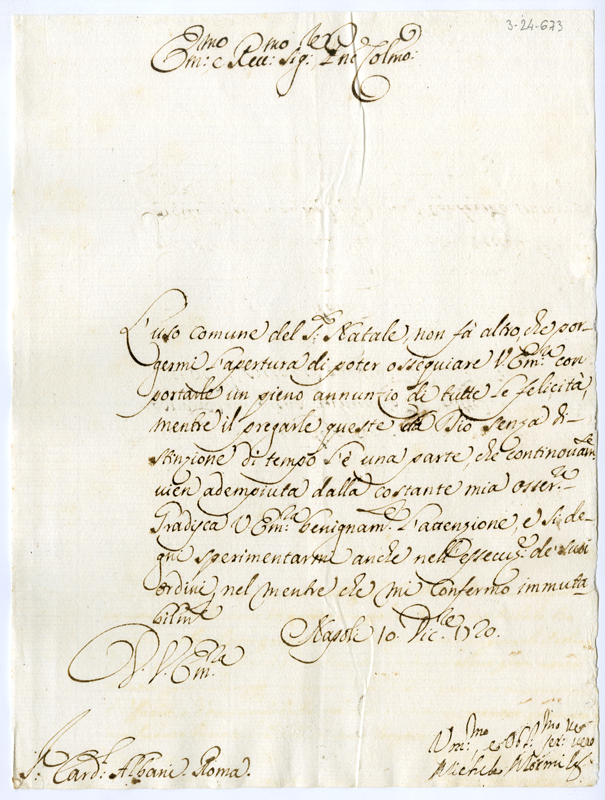 3-24-673
Em:mo e Reu:mo Sig:r Pne Colmo:
L'uso comune del S. Natale, non fà altro, che por-
germi l'apertura di poter ossequiare V. Em.za con
portarle un pieno annunzio di tutte le felicità,
mentre il pregarle queste da Dio senza di-
stinzione di tempo s'è una parte, che continouam.te
vien adempiuta dalla costante mia osser.za
Gradisca V. Em.za benignam.te l'attenzione, e si de-
gni sperimentarmi anche nell'essecuz.e de' suoi
ordini, nel mentre che mi confermo immuta-
bilm.te
Napoli 10 Dic.bre 1720.
D. V. Em.za
S.r Card.l Albani. Roma.
Vm:mo, e Obl:mo ser: vero
Michele